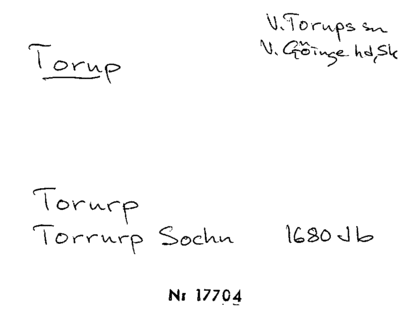 V. Torups sn
Torup
V. Göinge hd, Sk
Torurp
Torrurp Sochn 1680 Jb
Nr 17704